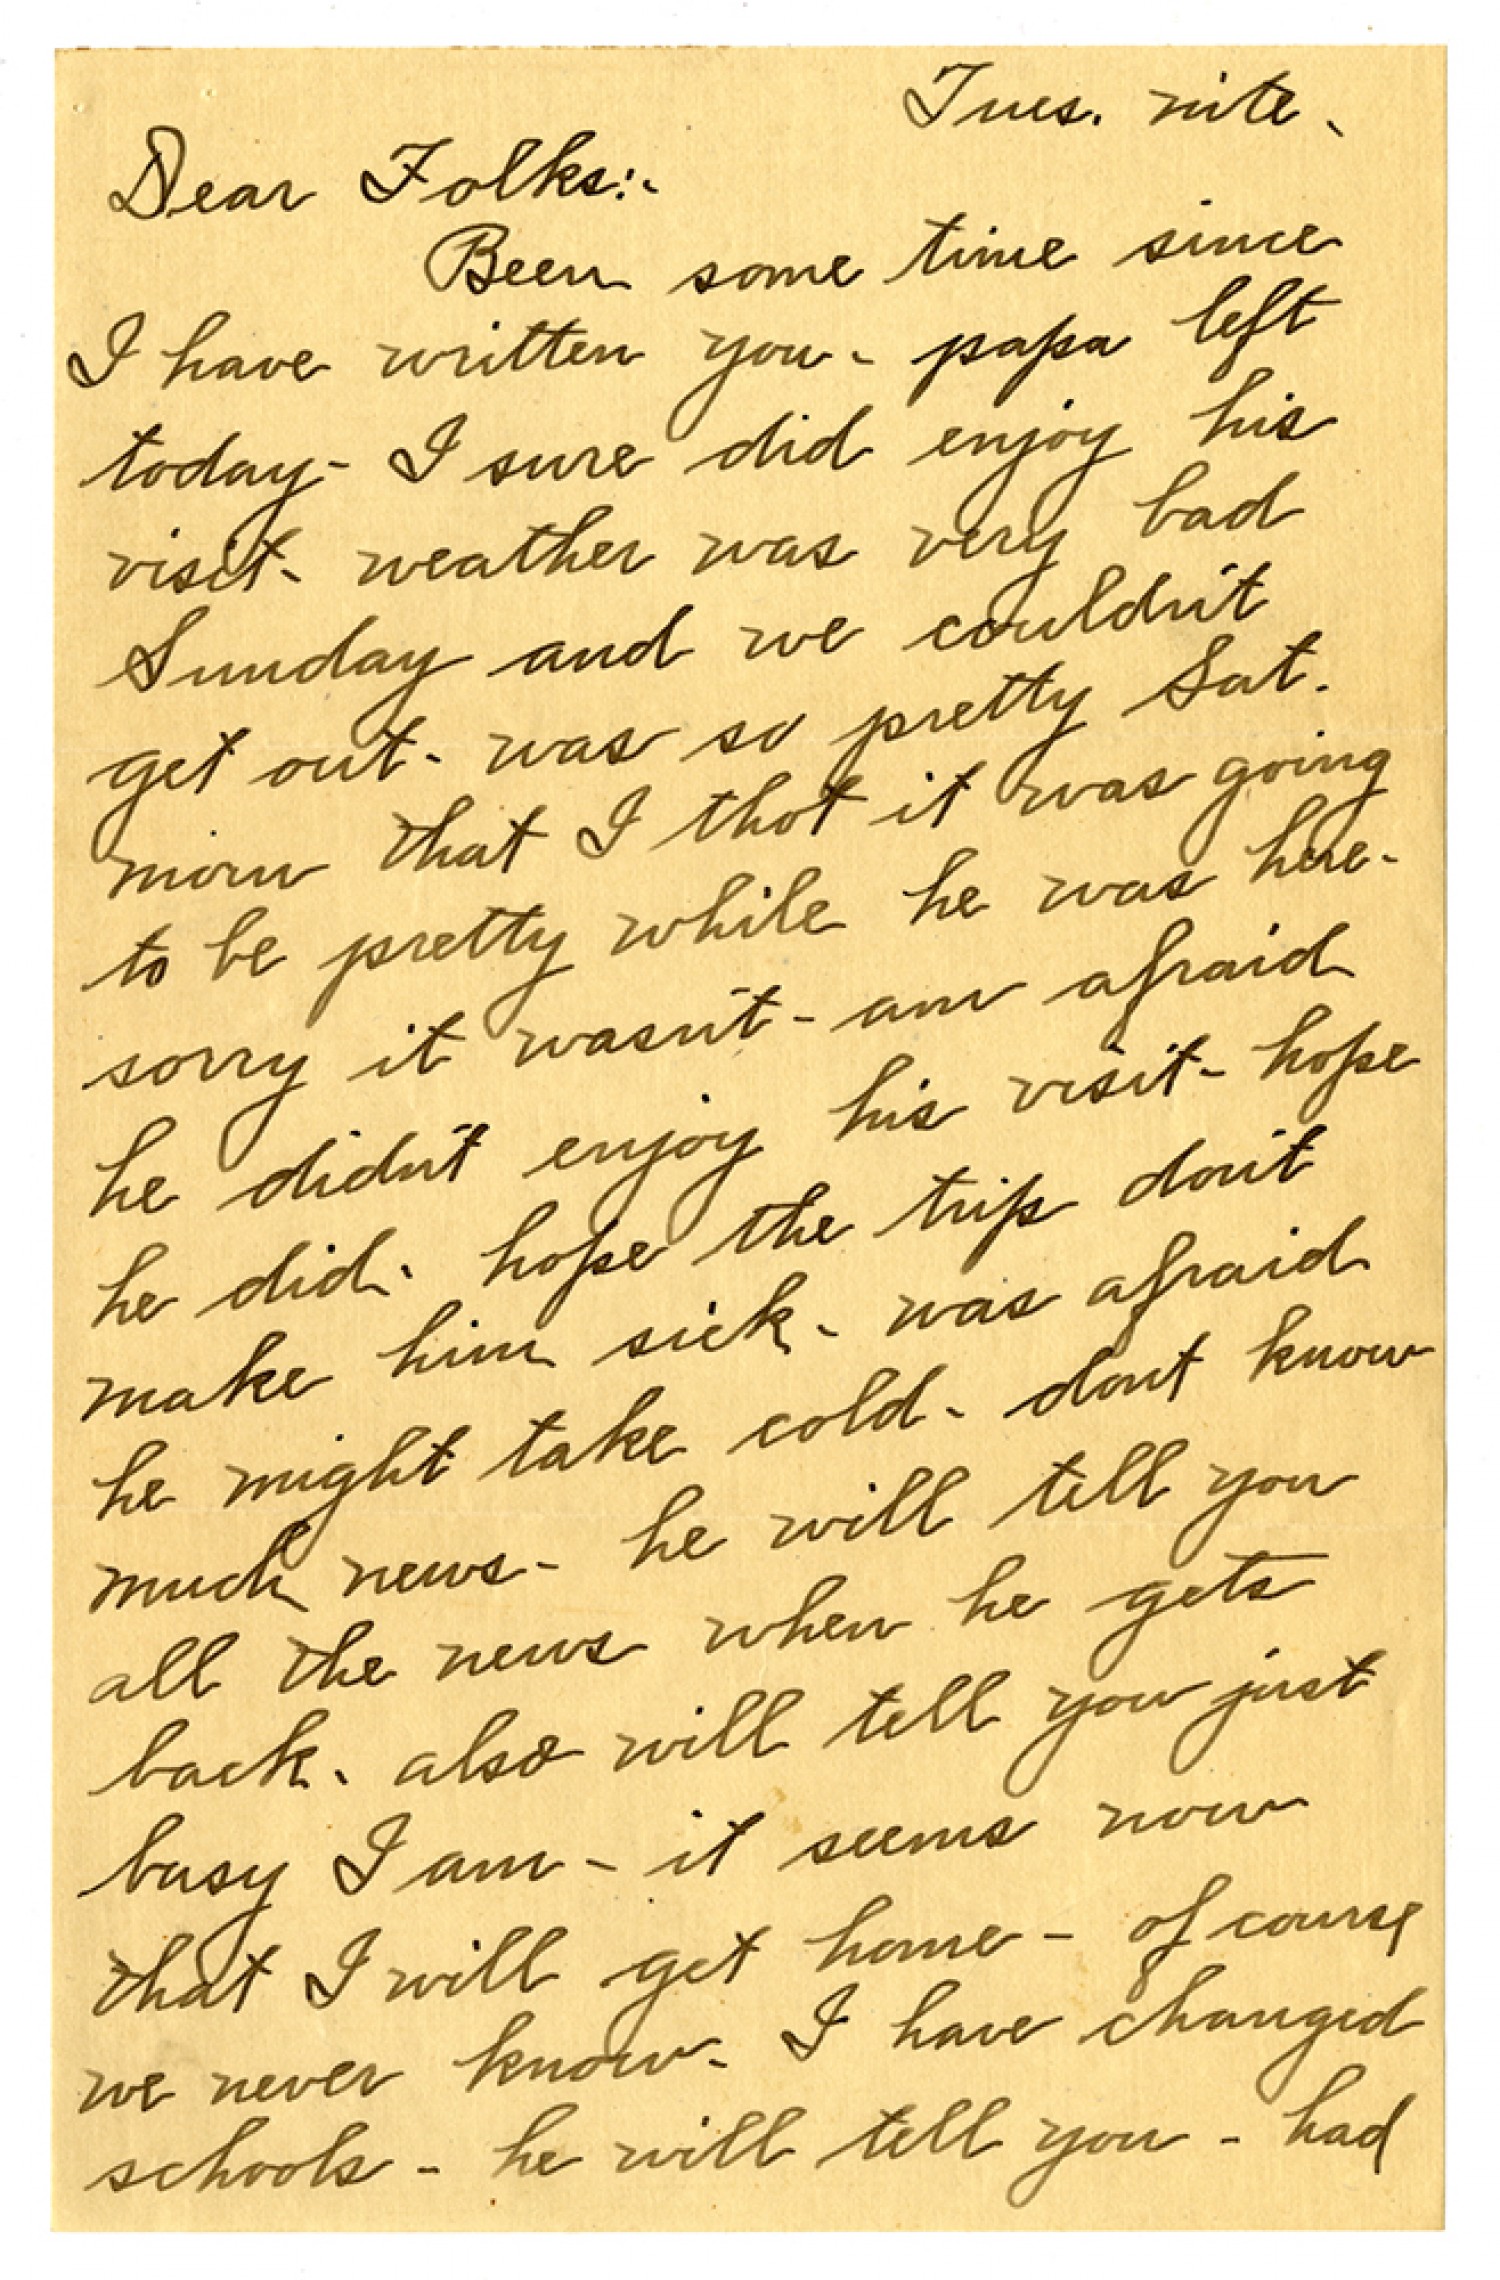 Tues. nite.
Dear Folks:-
Been some time since
I have written you - papa left
today - I sure did enjoy his
visit - weather was very bad
Sunday and we couldn't
get out - was so pretty Sat.
morn that I thot it was going
to be pretty while he was here -
sorry it wasn't - am afraid
he didn't enjoy his visit - hope
he did. hope the trip don't
make him sick - was afraid
he might take cold - dont know
much news - he will tell you
all the news when he gets
back. also will tell you just
busy I am - it seems now
that I will get home - of course
we never know - I have changed
schools - he will tell you - had